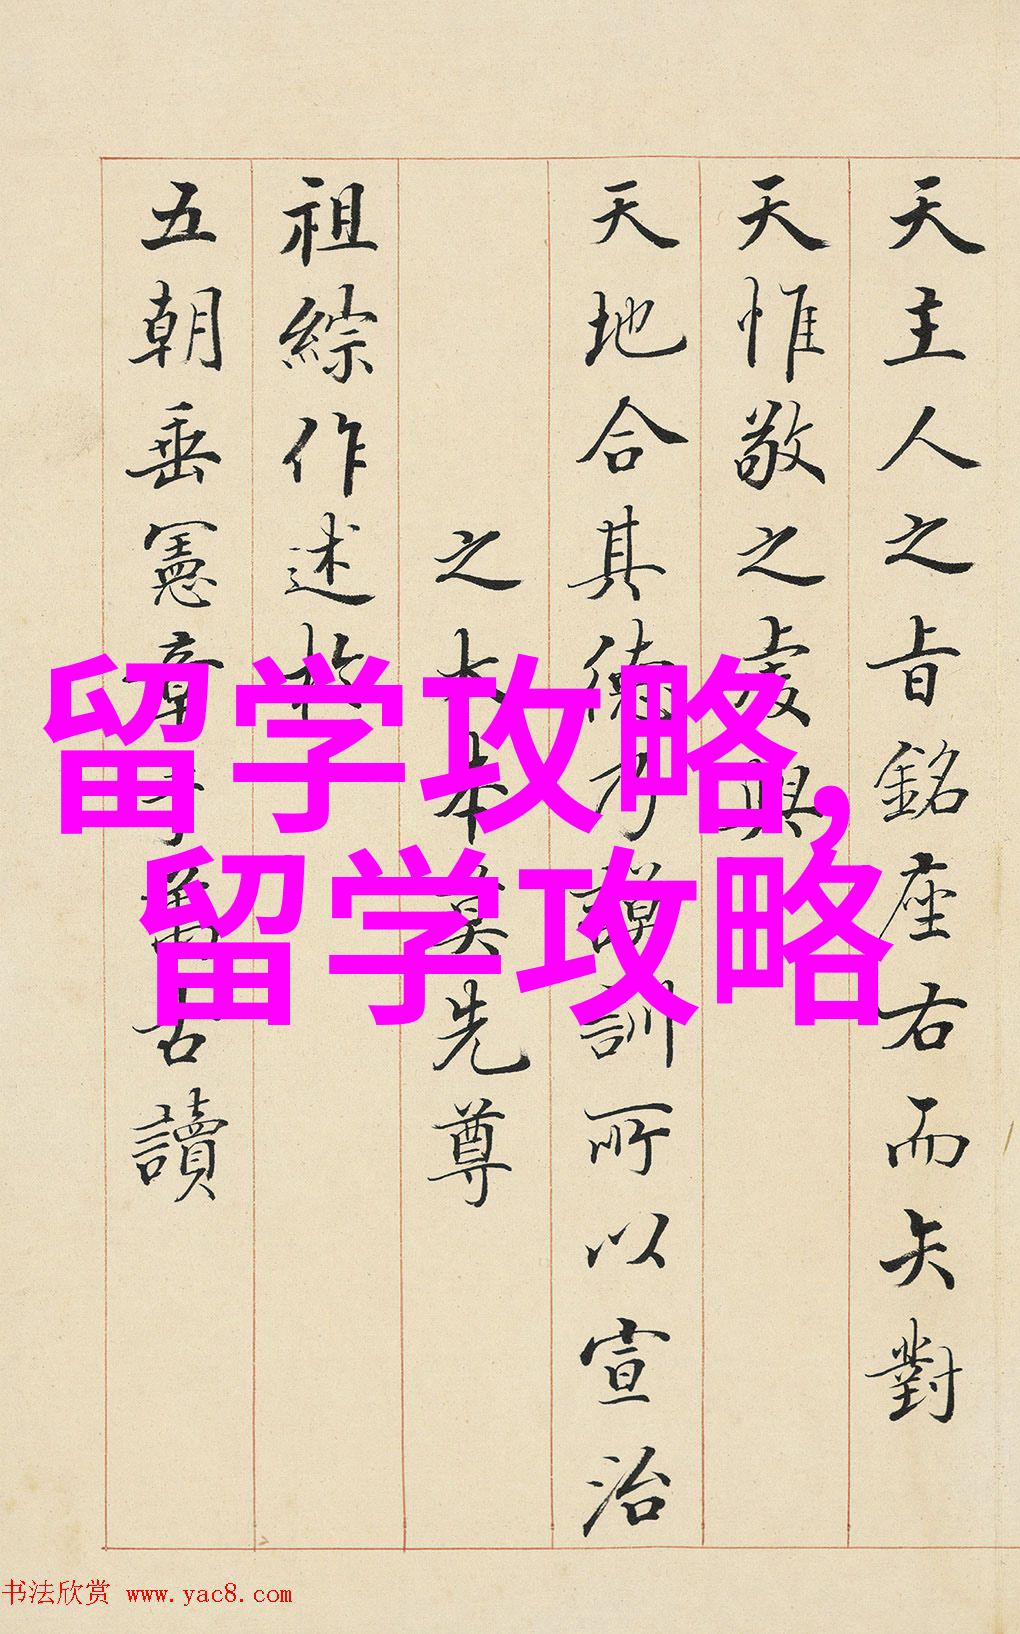 天主人之旨銘座右而矢對
天惟敬之處與
天地合其德乃謨訓所以宣治
之大本莫先尊
祖綜作述於
五朝垂憲章于萬古讀
留学攻略,
留学攻略
书法欣赏 www.yac8.com